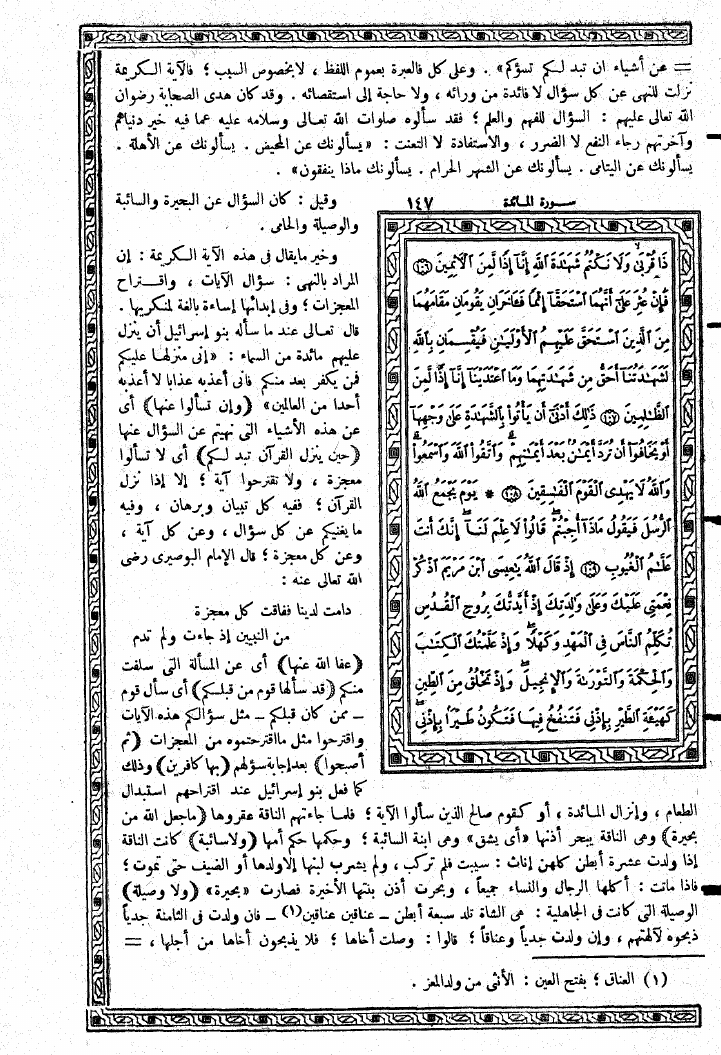 = عن أشياء ان تبد لكم تسؤكم» . وعلى كل فالعبرة بعموم اللفظ ، لابخصوص السبب ؛ فالآية الكريمة
نزلت للنهى عن كل سؤال لا فائدة من ورائه ، ولا حاجة إلى استقصائه . وقد كان هدى الصحابة رضوان
الله تعالى عليهم : السؤال للفهم والعلم ؛ فقد سألوه صلوات الله تعالى وسلامه عليه عما فيه خير دنياهم
وآخرتهم رجاء النفع لا الضرر ، والاستفادة لا التعنت : «يسألونك عن المحيض . يسألونك عن الأهلة .
يسألونك عن اليتامى . يسألونك عن الشهر الحرام . يسألونك ماذا ينفقون» .
وقيل : كان السؤال عن البحيرة والسائبة
والوصيلة والحامى .
وخير مايقال فى هذه الآية الكريمة : إن
المراد بالنهى : سؤال الآيات ، واقتراح
المعجزات ؛ وفى إبدائها إساءة بالغة لمنكريها .
قال تعالى عند ما سأله بنو إسرائيل أن ينزل
عليهم مائدة من السماء : «إنى منزلها عليكم
فمن يكفر بعد منكم فانى أعذبه عذابا لا أعذبه
أحدا من العالمين» (وإن تسألوا عنها) أى
عن هذه الأشياء التى نهيتم عن السؤال عنها
(حين ينزل القرآن تبد لكم) أى لا تسألوا
معجزة ، ولا تقترحوا آية ؛ إلا إذا نزل
القرآن ؛ ففيه كل تبيان وبرهان ، وفيه
ما يغنيكم عن كل سؤال ، وعن كل آية ،
وعن كل معجزة ؛ قال الإمام البوصيرى رضى
الله تعالى عنه :
دامت لدينا ففاقت كل معجزة
من النبيين إذ جاءت ولم تدم
(عفا الله عنها) أى عن المسألة التى سلفت
منكم (قد سألها قوم من قبلكم) أى سأل قوم
– ممن كان قبلكم – مثل سؤالكم هذه الآيات
واقترحوا مثل مااقترحتموه من المعجزات (ثم
أصبحوا) بعد إجابة سؤلهم (بها كافرين) وذلك
كما فعل بنو إسرائيل عند اقتراحهم استبدال
سورة المائدة ١٤٧
ذَا قُرْبَىٰ وَلَا نَكْتُمُ شَهَٰدَةَ ٱللَّهِ إِنَّآ إِذًا لَّمِنَ ٱلْأٓثِمِينَ ١٠٦
فَإِنْ عُثِرَ عَلَىٰٓ أَنَّهُمَا ٱسْتَحَقَّآ إِثْمًا فَـَٔاخَرَانِ يَقُومَانِ مَقَامَهُمَا
مِنَ ٱلَّذِينَ ٱسْتَحَقَّ عَلَيْهِمُ ٱلْأَوْلَيَٰنِ فَيُقْسِمَانِ بِٱللَّهِ
لَشَهَٰدَتُنَآ أَحَقُّ مِن شَهَٰدَتِهِمَا وَمَا ٱعْتَدَيْنَآ إِنَّآ إِذًا لَّمِنَ
ٱلظَّٰلِمِينَ ١٠٧ ذَٰلِكَ أَدْنَىٰٓ أَن يَأْتُوا۟ بِٱلشَّهَٰدَةِ عَلَىٰ وَجْهِهَآ
أَوْ يَخَافُوٓا۟ أَن تُرَدَّ أَيْمَٰنٌۢ بَعْدَ أَيْمَٰنِهِمْ ۗ وَٱتَّقُوا۟ ٱللَّهَ وَٱسْمَعُوا۟ ۗ
وَٱللَّهُ لَا يَهْدِى ٱلْقَوْمَ ٱلْفَٰسِقِينَ ١٠٨ * يَوْمَ يَجْمَعُ ٱللَّهُ
ٱلرُّسُلَ فَيَقُولُ مَاذَآ أُجِبْتُمْ ۖ قَالُوا۟ لَا عِلْمَ لَنَآ ۖ إِنَّكَ أَنتَ
عَلَّٰمُ ٱلْغُيُوبِ ١٠٩ إِذْ قَالَ ٱللَّهُ يَٰعِيسَى ٱبْنَ مَرْيَمَ ٱذْكُرْ
نِعْمَتِى عَلَيْكَ وَعَلَىٰ وَٰلِدَتِكَ إِذْ أَيَّدتُّكَ بِرُوحِ ٱلْقُدُسِ
تُكَلِّمُ ٱلنَّاسَ فِى ٱلْمَهْدِ وَكَهْلًا ۖ وَإِذْ عَلَّمْتُكَ ٱلْكِتَٰبَ
وَٱلْحِكْمَةَ وَٱلتَّوْرَىٰةَ وَٱلْإِنجِيلَ ۖ وَإِذْ تَخْلُقُ مِنَ ٱلطِّينِ
كَهَيْـَٔةِ ٱلطَّيْرِ بِإِذْنِى فَتَنفُخُ فِيهَا فَتَكُونُ طَيْرًۢا بِإِذْنِى ۖ
الطعام ، وإنزال المائدة ، أو كقوم صالح الذين سألوا الآية ؛ فلما جاءتهم الناقة عقروها (ماجعل الله من
بحيرة) وهى الناقة يبحر أذنها «أى يشق» وهى ابنة السائبة ؛ وحكمها حكم أمها (ولاسائبة) كانت الناقة
إذا ولدت عشرة أبطن كلهن إناث : سيبت فلم تركب ، ولم يشرب لبنها إلا ولدها أو الضيف حتى تموت ؛
فاذا ماتت : أكلها الرجال والنساء جميعاً ، وبحرت أذن بنتها الأخيرة فصارت «بحيرة» (ولا وصيلة)
الوصيلة التى كانت فى الجاهلية : هى الشاة تلد سبعة أبطن – عناقين عناقين(١) – فان ولدت فى الثامنة جدياً
ذبحوه لآلهتهم ، وإن ولدت جدياً وعناقاً ؛ قالوا : وصلت أخاها ؛ فلا يذبحون أخاها من أجلها ، =
(١) العناق ؛ بفتح العين : الأنثى من ولد المعز .